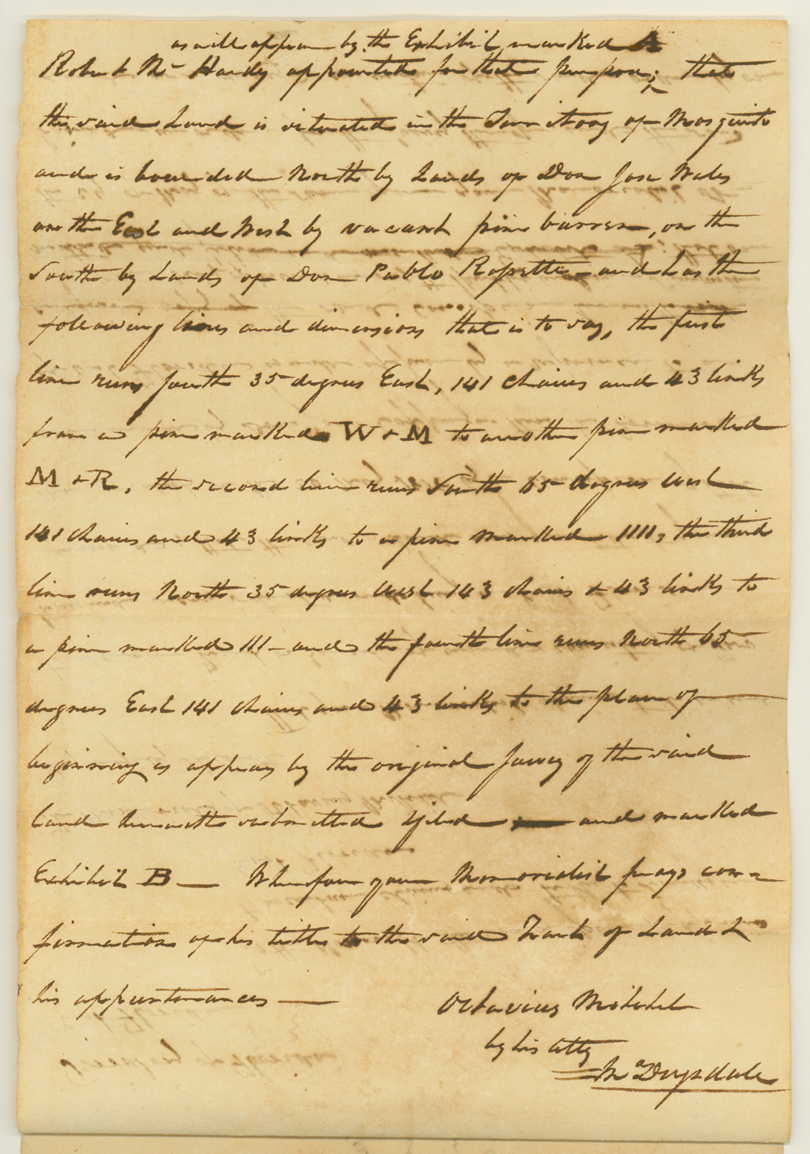 as will appear by the Exhibit marked A
Robert Mc Hardy appointed for that purpose; that
the said Land is situated in the Territory of Mosquito
and is bounded North by Lands of Don Jose Wales
on the East and West by vacant pine barren, on the
South by Lands of Don Pablo Rosette and has the
following lines and dimensions that is to say, the first
line runs South 35 degrees East, 141 Chains and 43 links
from a pine marked W + M to another pine marked
M + R, the second line runs South 65 degrees West
141 chains and 43 links to a pine marked 1111, the third
line runs North 35 degrees West 143 chains & 43 links to
a pine marked 111 - and the fourth line runs North 65
degrees East 141 chains and 43 links to the place of
beginning as appears by the original Survey of the said
land herewith submitted & filed and marked
Exhibit B — Wherefore your Memorialist prays con-
firmation of his title to the said Tract of Land &
his appurtenances —
Octavius Mitchel
by his atty
Drysdale